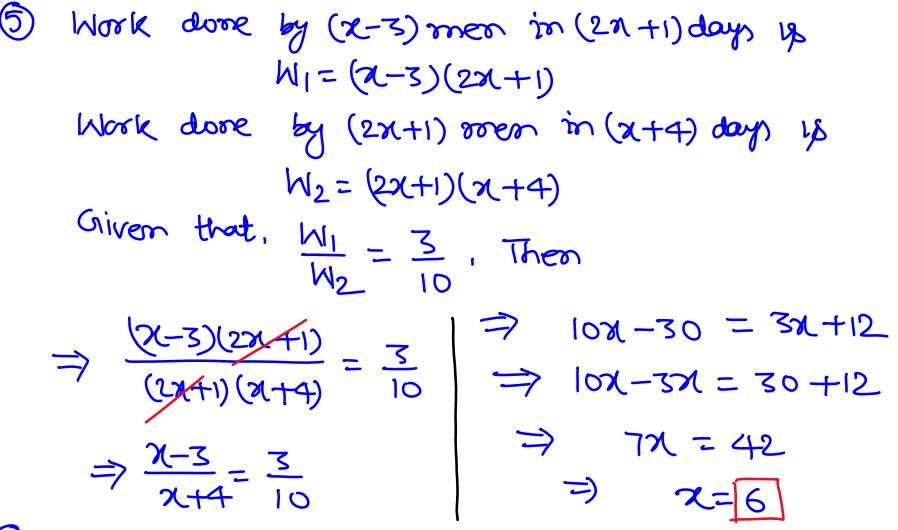 ⑤ Work done by (x-3) men in (2x+1) days is
W₁ = (x-3)(2x+1)
Work done by (2x+1) men in (x+4) days is
W₂ = (2x+1)(x+4)
Given that, W₁/W₂ = 3/10. Then
⇒ (x-3)(2x+1)/(2x+1)(x+4) = 3/10
⇒ x-3/x+4 = 3/10
⇒ 10x-30 = 3x+12
⇒ 10x-3x = 30+12
⇒ 7x = 42
⇒ x = 6